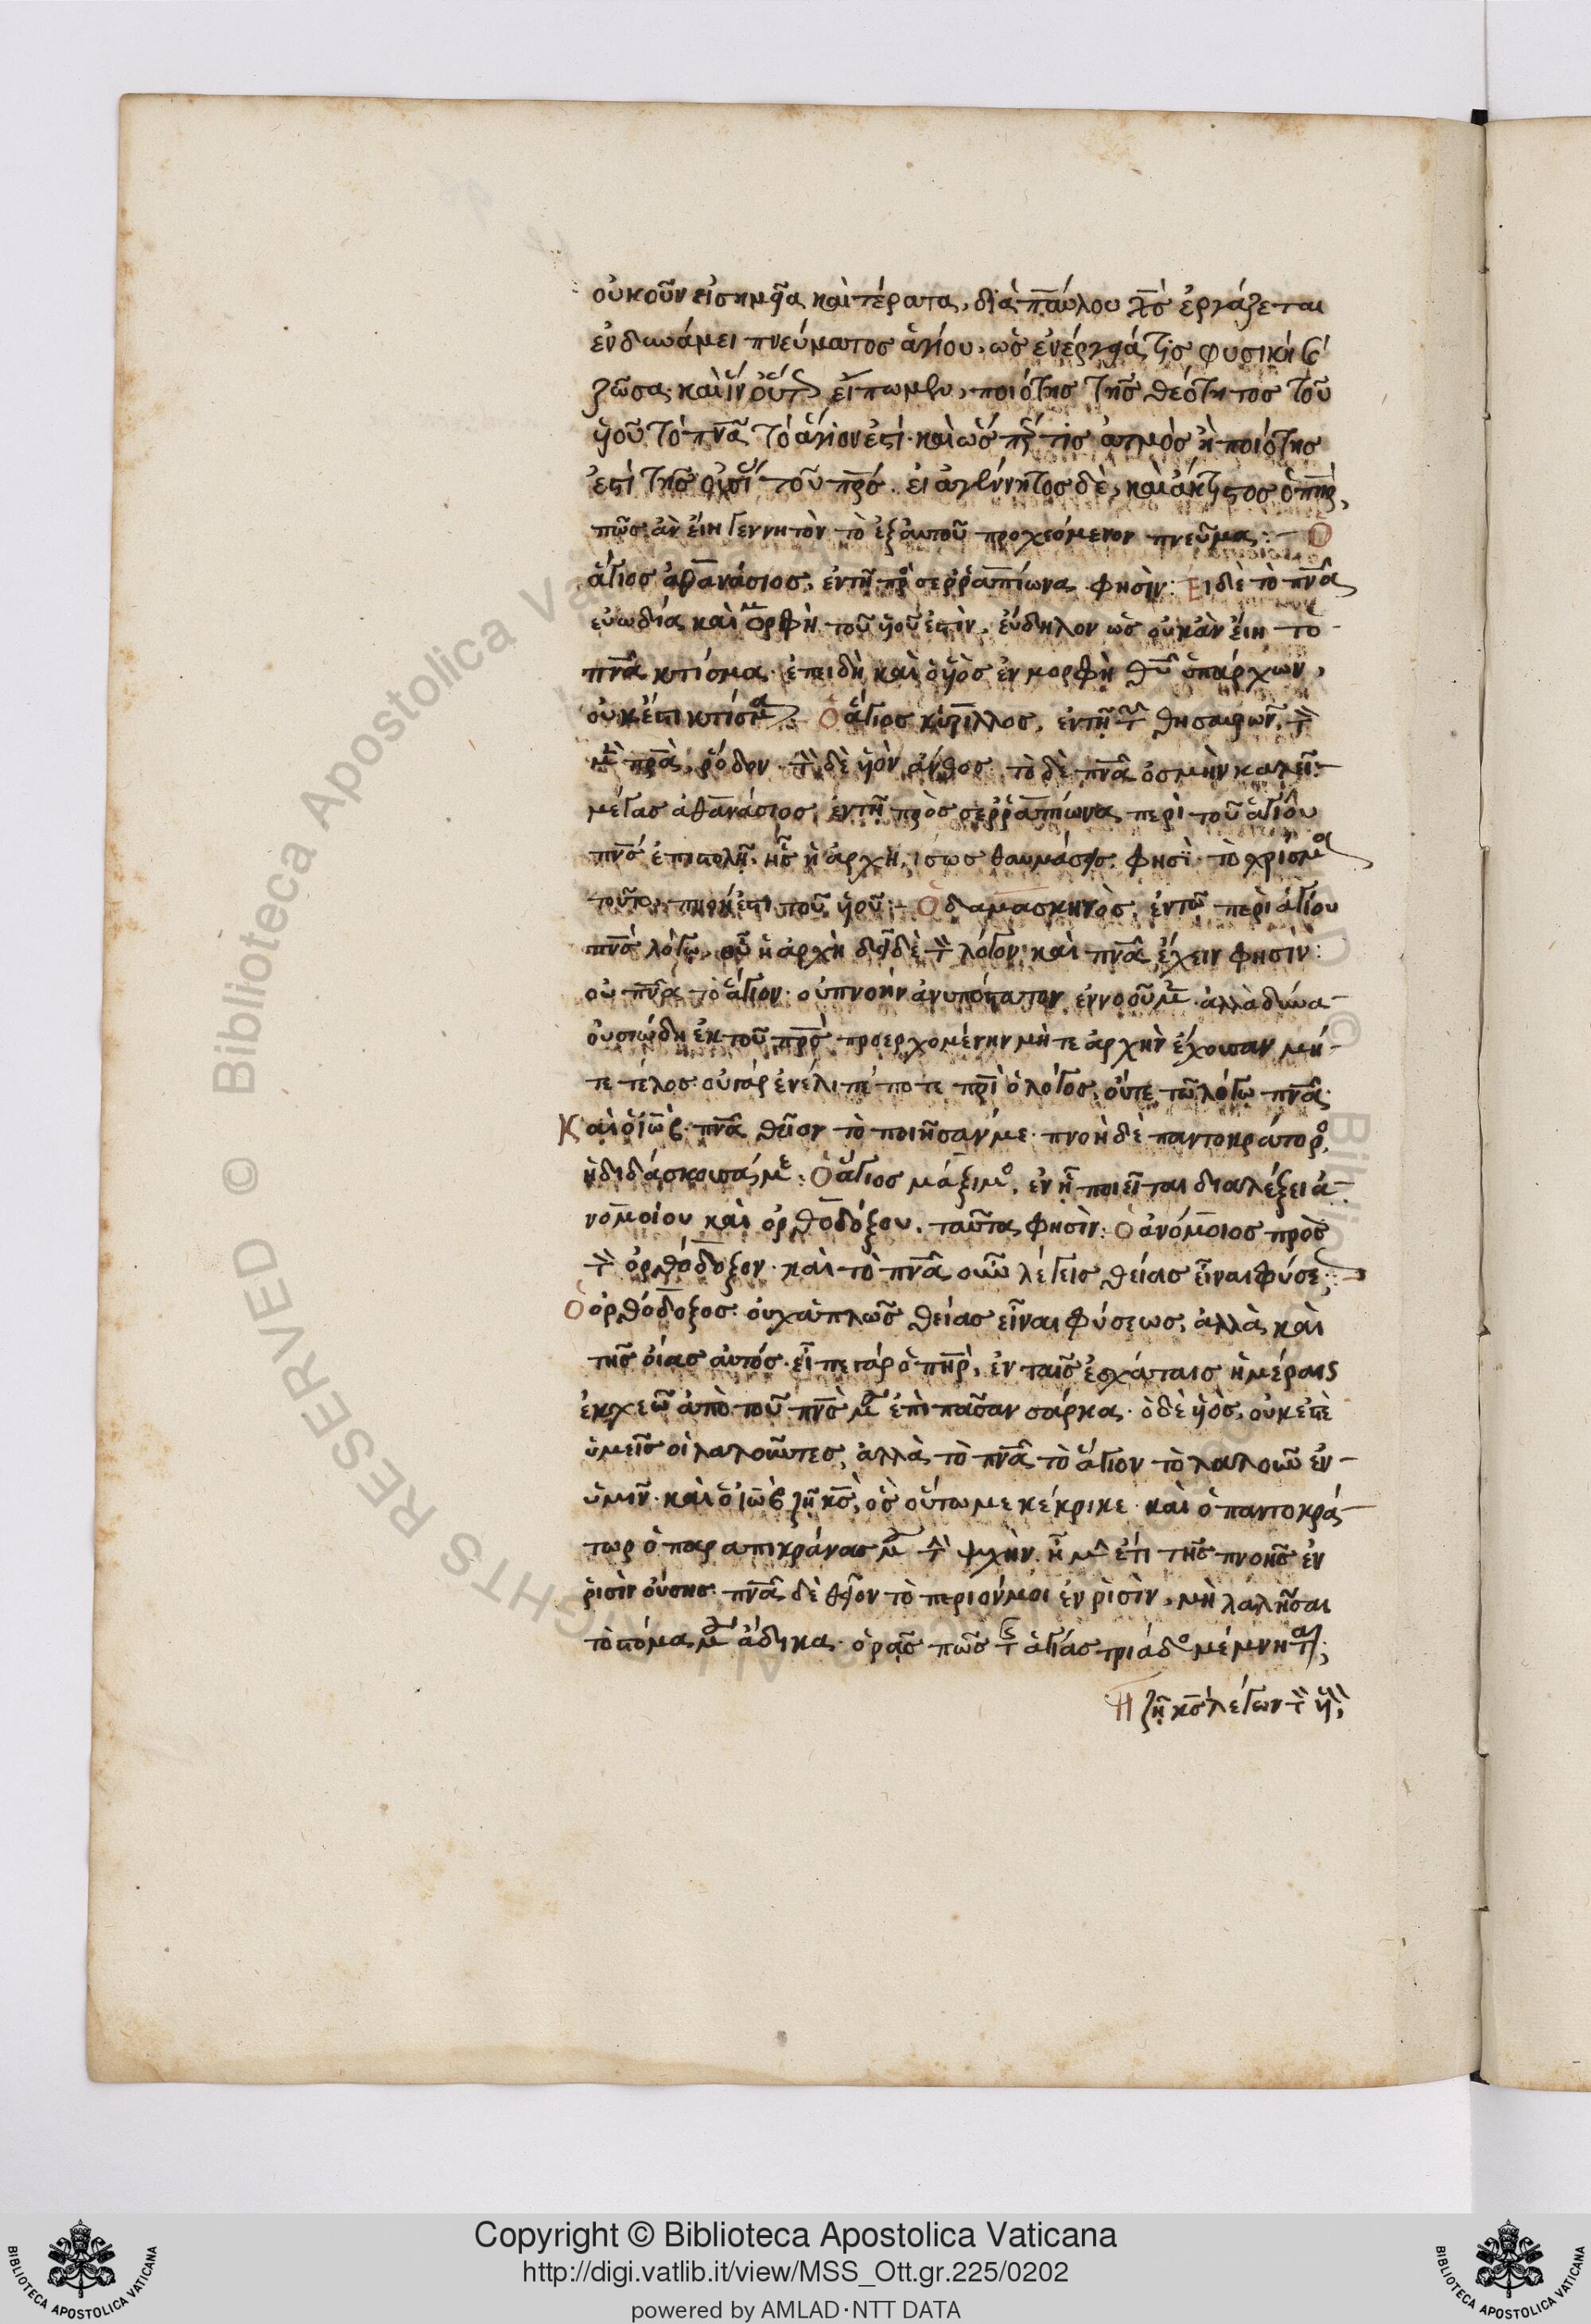 οὐκοῦν εἰ σημεῖα καὶ τέρατα, διὰ παύλου χς ἐργάζεται
ἐν δυνάμει πνεύματος ἁγίου, ὡς ἐνέργειά τις φυσικὴ καὶ
ζῶσα. καὶ ἵν' οὕτως εἴπωμεν, ποιότης τῆς θεότητος τοῦ
υἱοῦ τὸ πνα τὸ ἅγιον ἐστί. καὶ ὥσπερ τις ἀτμὸς ἢ ποιότης
ἐστὶ τῆς οὐσίας τοῦ πρς. εἰ ἀγέννητος δὲ, καὶ ἄκτιστος ὁ πηρ,
πῶς ἂν εἴη γεννητὸν τὸ ἐξ αὐτοῦ προχεόμενον πνεῦμα:– Ὁ
ἅγιος ἀθανάσιος, ἐν τῇ πρὸς σερραπίωνα φησίν: Εἰ δὲ τὸ πνα
εὐωδία καὶ μορφὴ τοῦ υἱοῦ ἐστὶν, εὔδηλον ὡς οὐκ ἂν εἴη τὸ
πνα κτίσμα. ἐπειδὴ καὶ ὁ υἱὸς ἐν μορφῇ θυ ὑπάρχων,
οὐκ ἔστι κτίσμα. Ὁ ἅγιος κύριλλος, ἐν τῇ τῶν θησαυρῶν, τὸν
μὲν πρα, ῥόδον. τὸν δὲ υἱὸν ἄνθος, τὸ δὲ πνα ὀσμὴν καλεῖ:–
μέγας ἀθανάσιος, ἐν τῇ πρὸς σερραπίωνα περὶ τοῦ ἁγίου
πνς ἐπιστολῇ. ἧς ἡ ἀρχὴ, ἴσως θαυμάσεις. φησί. τὸ χρίσμα
τοῦτο, πνοή ἐστι τοῦ υἱοῦ:– Ὁ δαμασκηνὸς, ἐν τῷ περὶ ἁγίου
πνς λόγῳ, οὗ ἡ ἀρχὴ δεῖ δὲ τὸν λόγον καὶ πνα ἔχειν φησίν:
οὐ πνα τὸ ἅγιον. οὐ πνοὴν ἀνυπόστατον ἐννοοῦμεν. ἀλλὰ δύνα–
οὐσιώδη ἐκ τοῦ πρς προερχομένην μήτε ἀρχὴν ἔχουσαν μή–
τε τέλος. οὐ γὰρ ἐνέλιπέ ποτε πρι ὁ λόγος, οὔτε τῷ λόγῳ πνα.
Καὶ ὁ ἰὼβ. πνα θεῖον τὸ ποιῆσάν με. πνοὴ δὲ παντοκράτορος,
ἡ διδάσκουσά με: Ὁ ἅγιος μάξιμος, ἐν ᾗ ποιεῖται διαλέξει ἀ–
νομοίου καὶ ὀρθοδόξου. ταῦτα φησίν: Ὁ ἀνόμοιος πρὸς
τὸν ὀρθόδοξον. καὶ τὸ πνα οὖν λέγεις θείας εἶναι φύσεως;
Ὁ ὀρθόδοξος: οὐχ ἁπλῶς θείας εἶναι φύσεως, ἀλλὰ καὶ
τῆς οἵας αὐτός. εἶπε γὰρ ὁ πηρ, ἐν ταῖς ἐσχάταις ἡμέραις
ἐκχεῶ ἀπὸ τοῦ πνς μου ἐπὶ πᾶσαν σάρκα. ὁ δὲ υἱὸς, οὐκ ἐστὲ
ὑμεῖς οἱ λαλοῦντες, ἀλλὰ τὸ πνα τὸ ἅγιον τὸ λαλοῦν ἐν–
ὑμῖν. καὶ ὁ ἰὼβ ζῇ κς, ὃς οὕτω με κέκρικε. καὶ ὁ παντοκρά–
τωρ ὁ παραπικράνας μου τὴν ψυχήν. ἦ μὴν ἔτι τῆς πνοῆς ἐν
ῥισὶν οὔσης. πνα δὲ θεῖον τὸ περιόν μοι ἐν ῥισὶν, μὴ λαλῆσαι
τὸ στόμα μου ἄδικα. ὁρᾷς πῶς τῆς ἁγίας τριάδος μέμνηται;
ζῇ κς λέγων τὸν υἱὸν,
Copyright © Biblioteca Apostolica Vaticana
http://digi.vatlib.it/view/MSS_Ott.gr.225/0202
powered by AMLAD·NTT DATA